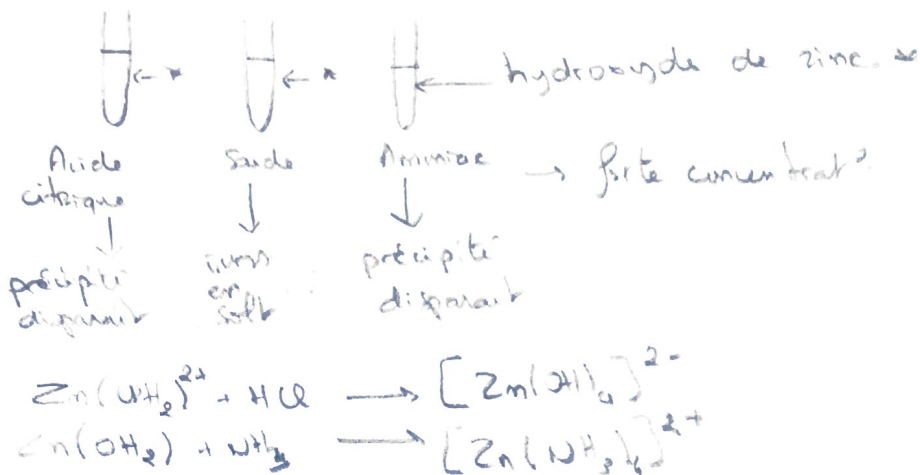 hydroxyde de zinc *
← *
← *
Acide citrique
Soude
Ammoniac → forte concentrat°
précipité disparait
ions en solt
précipité disparait
Zn(OH2)2+ + HCl → [Zn(OH)4]2-
Zn(OH2) + NH3 → [Zn(NH3)4]2+